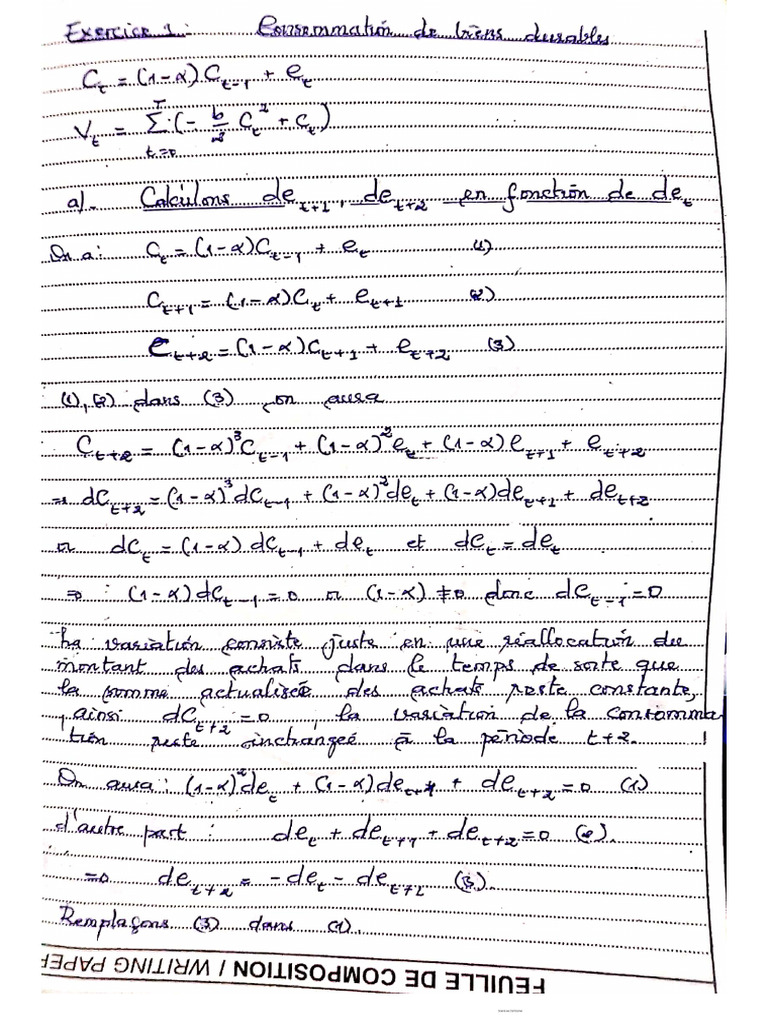 Exercice 1 : Consommation de biens durables
C_t = (1-α) C_{t-1} + e_t
V_t = Σ_{t=0}^{T} (- b/2 C_t^2 + C_t)
a). Calculons de_{t+1}, de_{t+2} en fonction de de_t
On a : C_t = (1-α) C_{t-1} + e_t (1)
C_{t+1} = (1-α) C_t + e_{t+1} (2)
C_{t+2} = (1-α) C_{t+1} + e_{t+2} (3)
(1), (2) dans (3) on aura
C_{t+2} = (1-α)^3 C_{t-1} + (1-α)^2 e_t + (1-α) e_{t+1} + e_{t+2}
⇒ dC_{t+2} = (1-α)^3 dC_{t-1} + (1-α)^2 de_t + (1-α) de_{t+1} + de_{t+2}
or dC_t = (1-α) dC_{t-1} + de_t et dC_t = de_t
⇒ : (1-α) dC_{t-1} = 0 or (1-α) ≠ 0 donc dC_{t-1} = 0
La variation consiste juste en une réallocation du
montant des achats dans le temps de sorte que
la somme actualisée des achats reste constante,
ainsi dC_{t+2} = 0, la variation de la consomma
tion reste inchangée à la période t+2.
On aura : (1-α)^2 de_t + (1-α) de_{t+1} + de_{t+2} = 0 (1)
d'autre part : de_t + de_{t+1} + de_{t+2} = 0 (2).
⇒ de_{t+2} = - de_t - de_{t+1} (3).
Remplaçons (3) dans (1).
FEUILLE DE COMPOSITION / WRITING PAPER